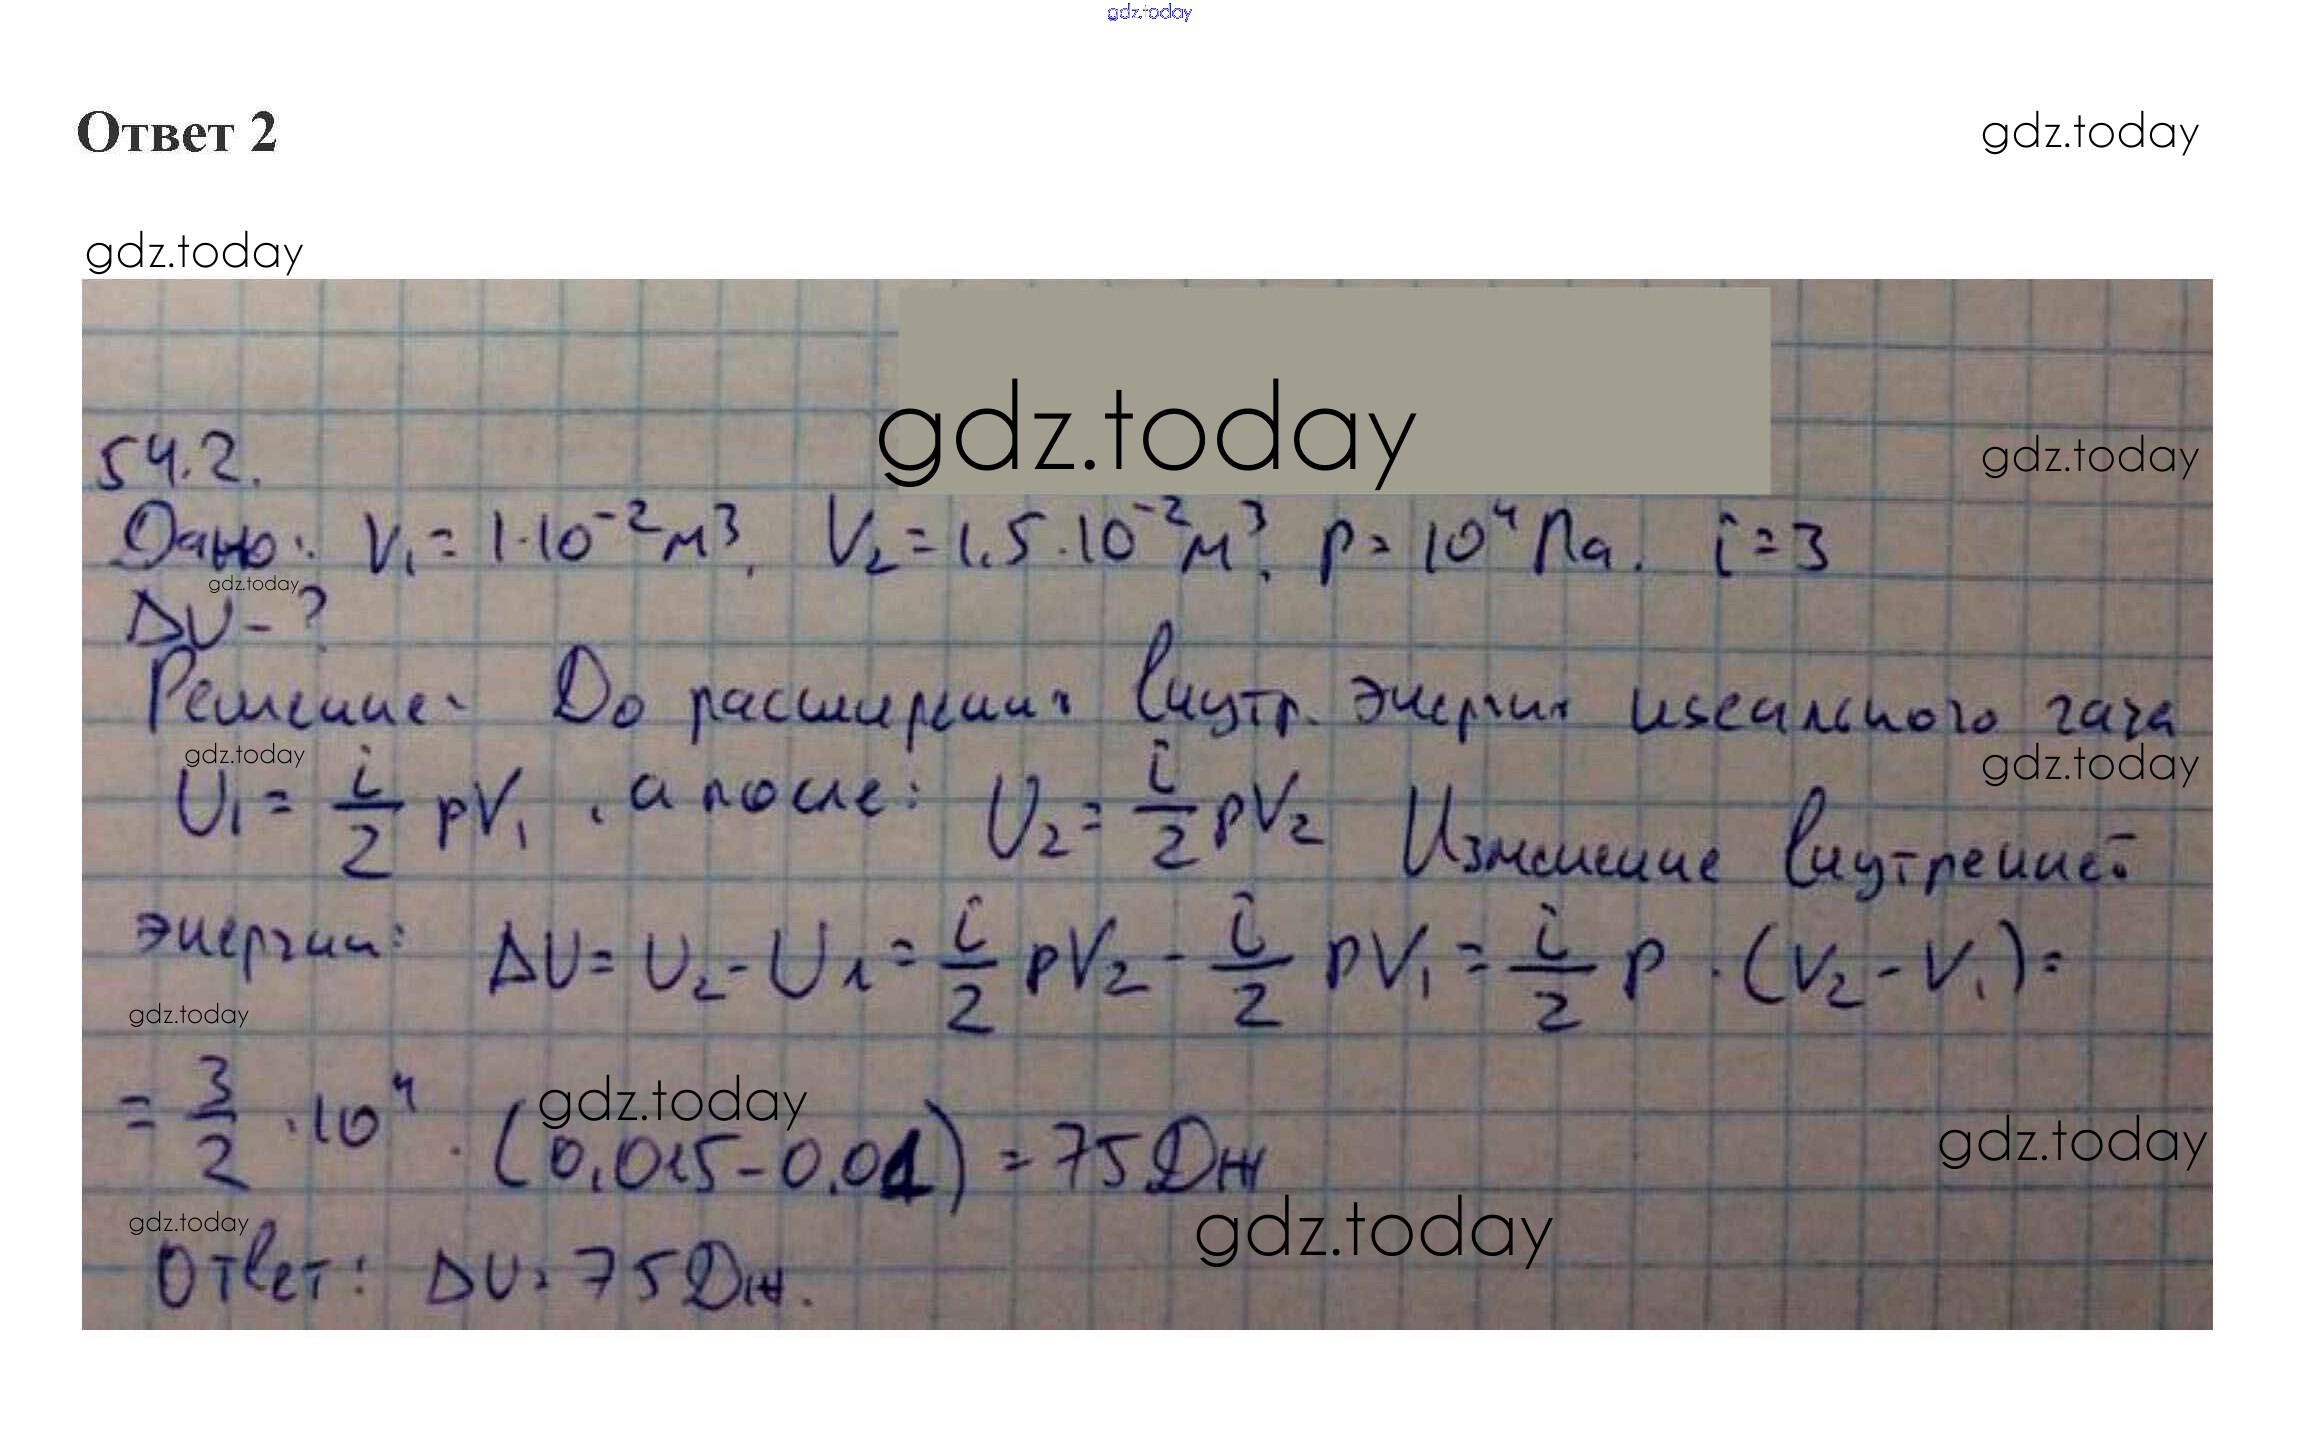 gdz.today
Ответ 2
gdz.today
gdz.today
gdz.today
54.2.
gdz.today
Дано: V₁ = 1·10⁻² м³, V₂ = 1,5·10⁻² м³, p = 10⁴ Па. i = 3
gdz.today
ΔU - ?
Решение: До расширения внутр. энергия идеального газа
gdz.today
gdz.today
U₁ = i/2 pV₁, а после: U₂ = i/2 pV₂ Изменение внутренней
энергии: ΔU = U₂ - U₁ = i/2 pV₂ - i/2 pV₁ = i/2 p · (V₂ - V₁) =
gdz.today
= 3/2 · 10⁴ · (0,015 - 0,01) = 75 Дж
gdz.today
gdz.today
gdz.today
gdz.today
Ответ: ΔU = 75 Дж.